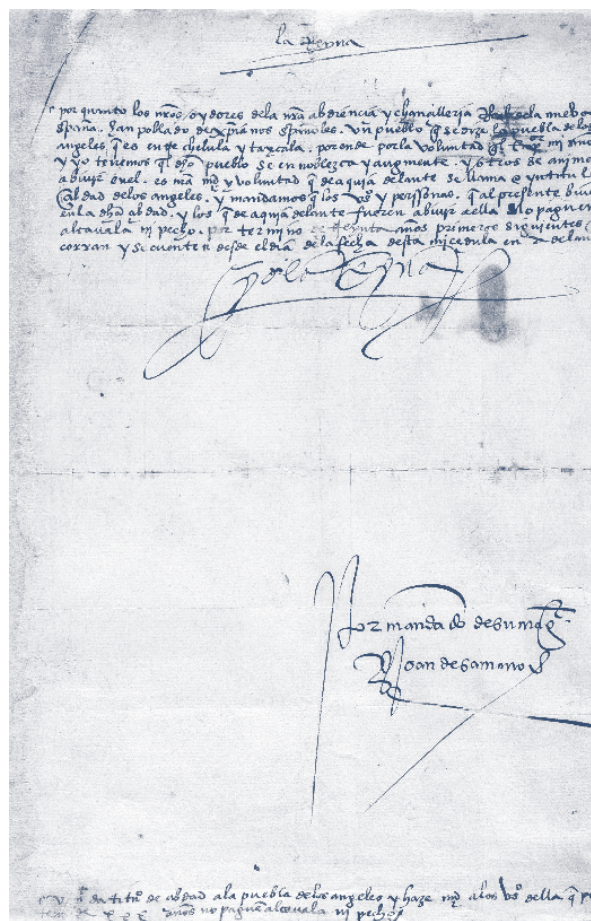 la Reyna
por quanto los nros oydores de la nra abdiencia y chancilleria
España. han poblado de xpianos españoles. Un pueblo q se dize la puebla delos
angeles q es entre chelula y taxcala. por ende por la voluntad q
y yo tenemos ql dho pueblo se ennoblezca y augmente. y otros se animen
a biuir enel. es nra md y voluntad q de aqui adelante se llame e yntitule
Cibdad delos angeles. y mandamos q los vos y perssonas. q al presente biuen
enla dha cibdad. y los q de aqui adelante fueren a biuir a ella no paguen
alcavala ni pecho. por termino de treynta años primeros siguientes
corran y se cuenten desde el dia de la fecha desta mi cedula en adelan
yo la Reyna
Por mandado de su mag
Joan de Samano
da titº de cibdad ala puebla delos angeles y haze md alos vos della q
xxx años no paguen alcavala ni pecho